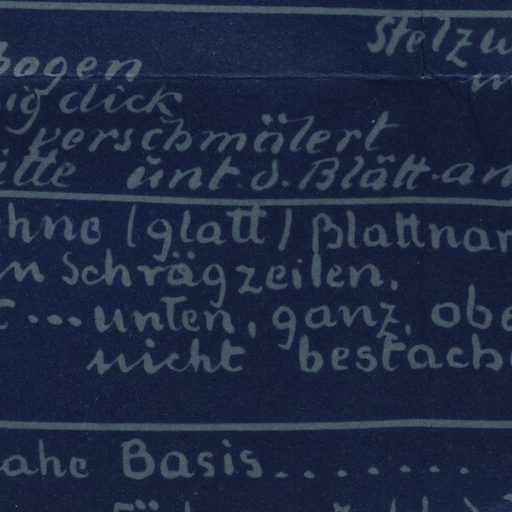 Stelzu
bogen
ig dick
verschmälert
itte unt. d. Blätt. an
hne (glatt) Blattnar
n Schrägzeilen.
... unten, ganz obe
nicht bestach
ahe Basis ........